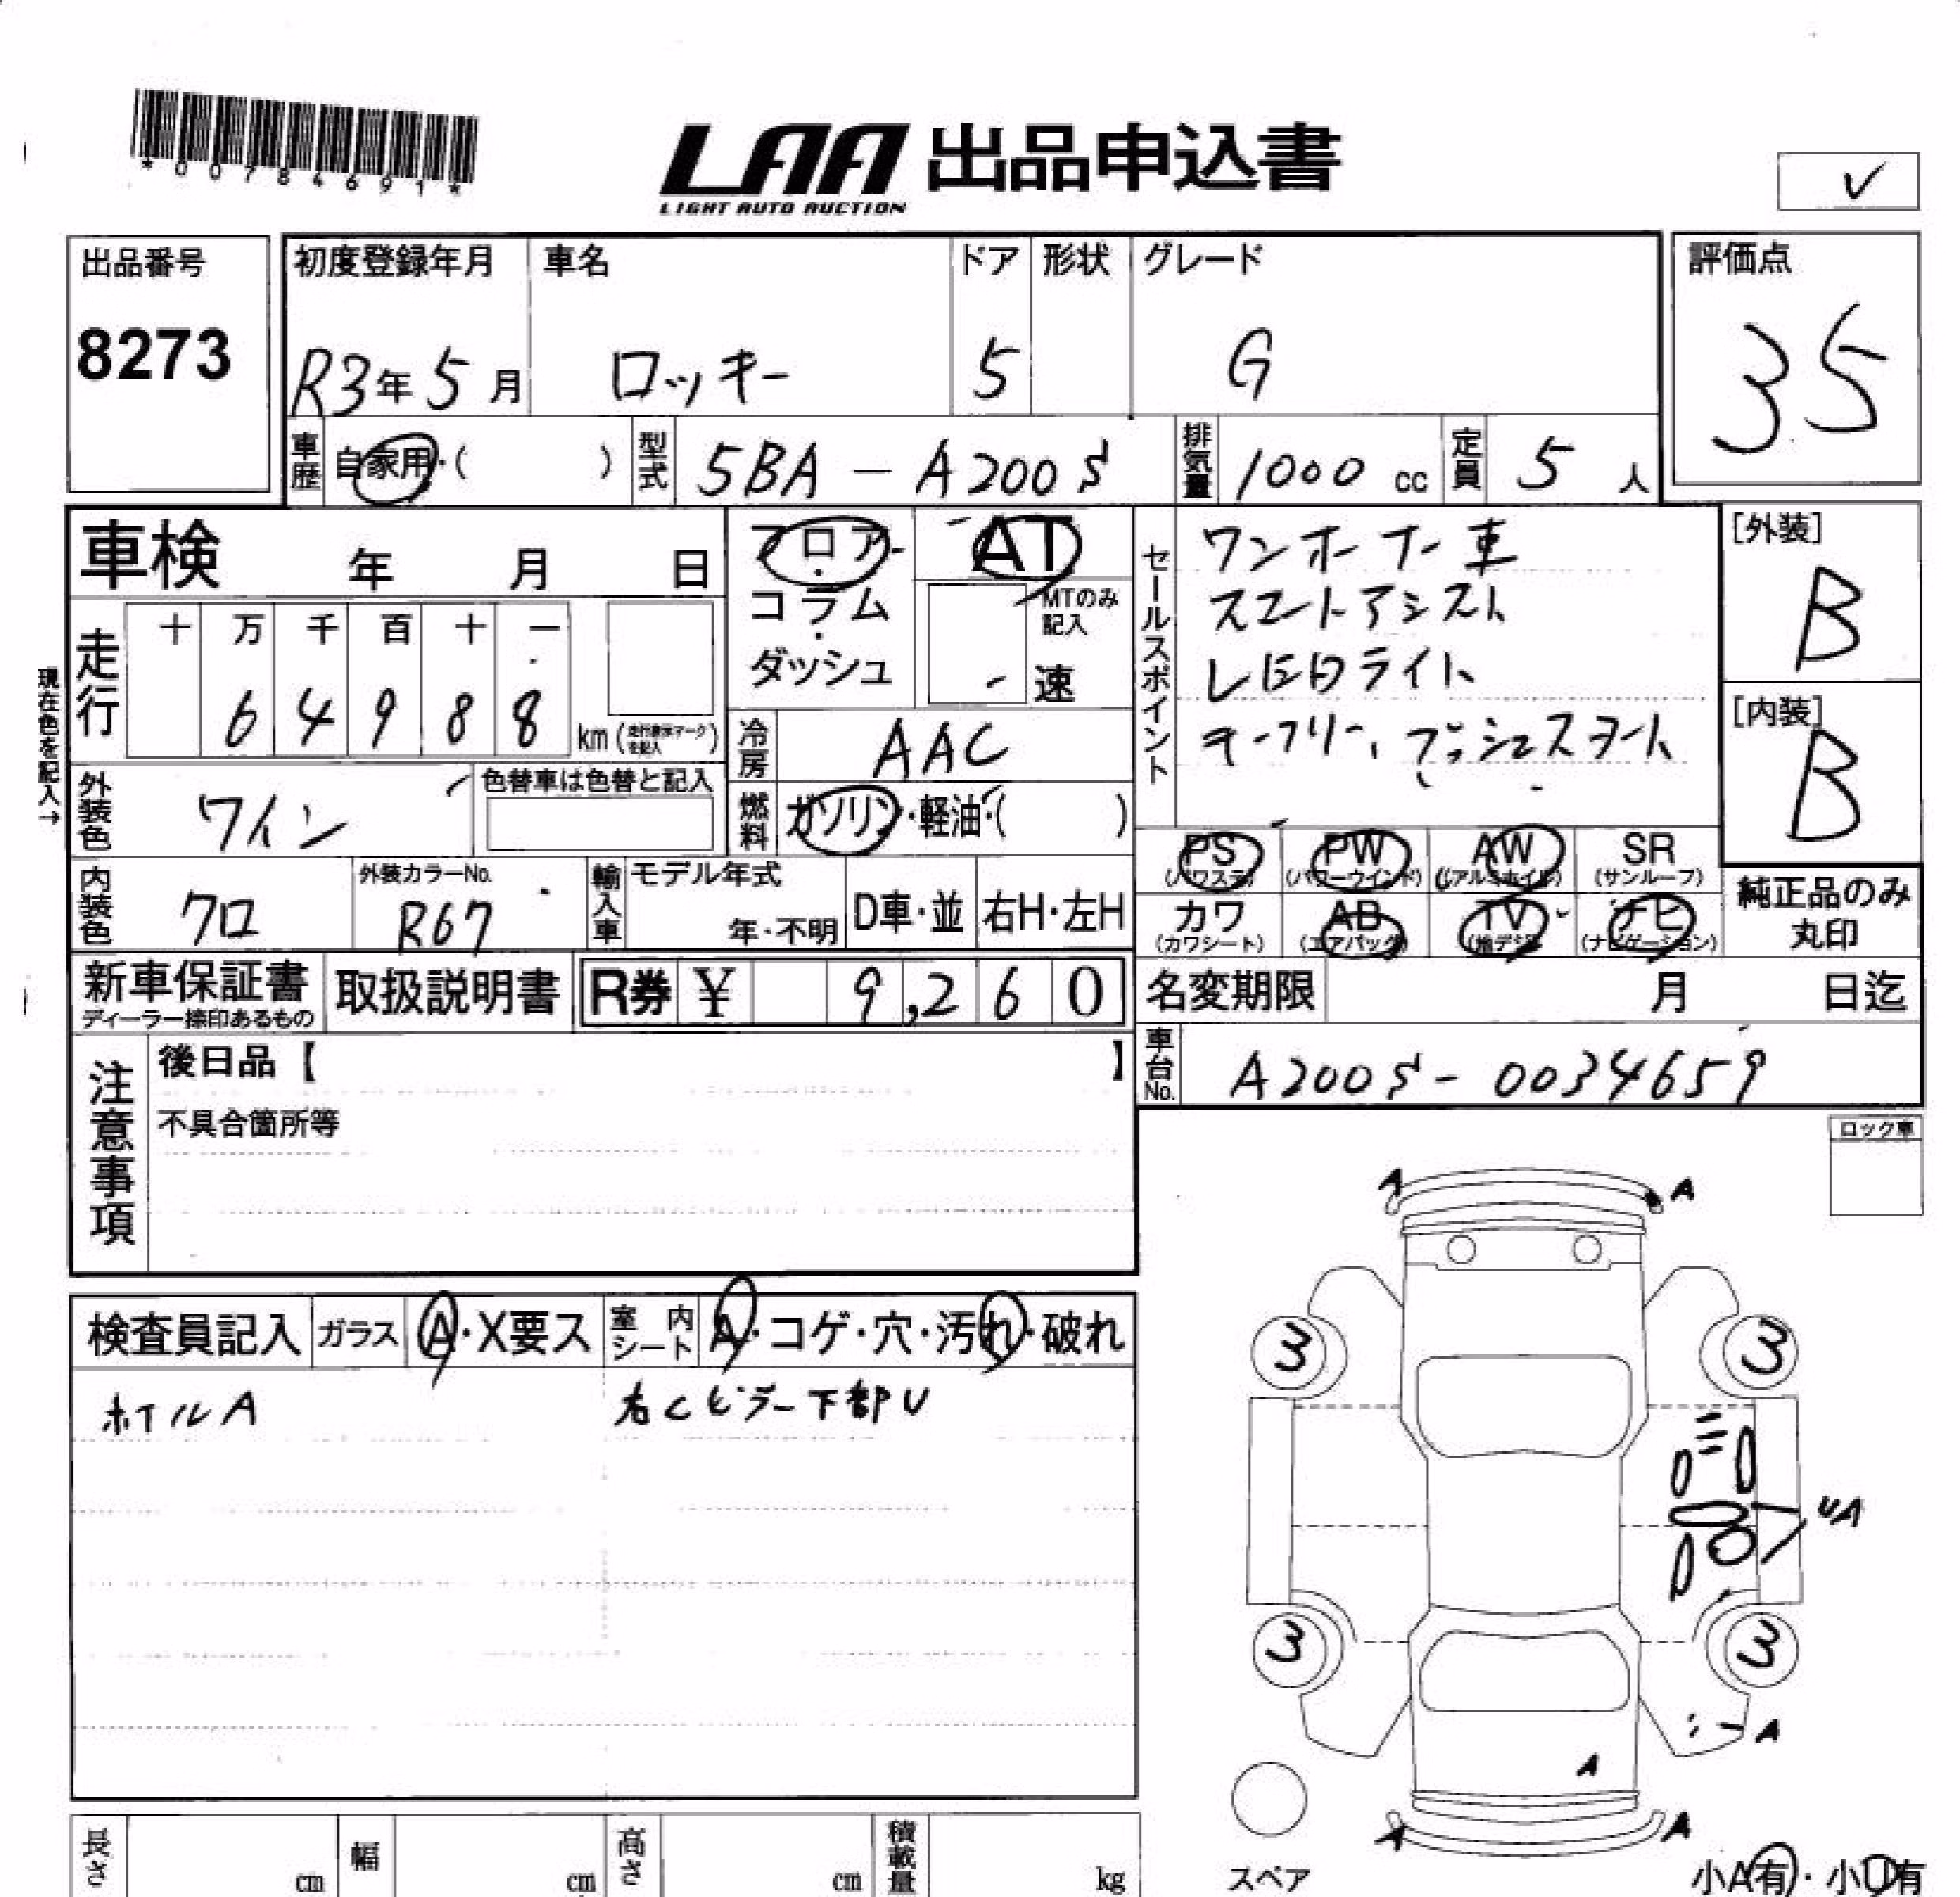 *00784691*
LAA 出品申込書
LIGHT AUTO AUCTION
✓
出品番号
8273
初度登録年月
R3年5月
車名
ロッキー
ドア
5
形状
グレード
G
評価点
35
車歴
自家用・( )
型式
5BA-A200S
排気量
1000 cc
定員
5人
車検 年 月 日
フロア
・
コラム
・
ダッシュ
AT
MTのみ
記入
速
セールスポイント
ワンオーナー車
スマートアシスト
LEDライト
キーフリー、プッシュスタート
[外装]
B
[内装]
B
現在色を記入→
走行
十 万 千 百 十 一
6 4 9 8 8
km
冷房
AAC
外装色
ワイン
色替車は色替と記入
燃料
ガソリン・軽油・( )
内装色
クロ
外装カラーNo.
R67
輸入車
モデル年式
年・不明
D車・並
右H・左H
PS
(パワステ)
PW
(パワーウインド)
AW
(アルミホイル)
SR
(サンルーフ)
カワ
(カワシート)
AB
(エアバッグ)
TV
(地デジ)
ナビ
(ナビゲーション)
純正品のみ
丸印
新車保証書
ディーラー捺印あるもの
取扱説明書
R券 ¥ 9,260
名変期限 月 日迄
注意事項
後日品【 】
不具合箇所等
車台No.
A200S-0034659
ロック車
検査員記入
ガラス
A・X要ス
室内シート
A・コゲ・穴・汚れ・破れ
ホイルA
右Cピラー下部U
A A
3 3
UA
3 3
A
A
A A
スペア
小A有・小U有
長さ cm
幅 cm
高さ cm
積載量 kg